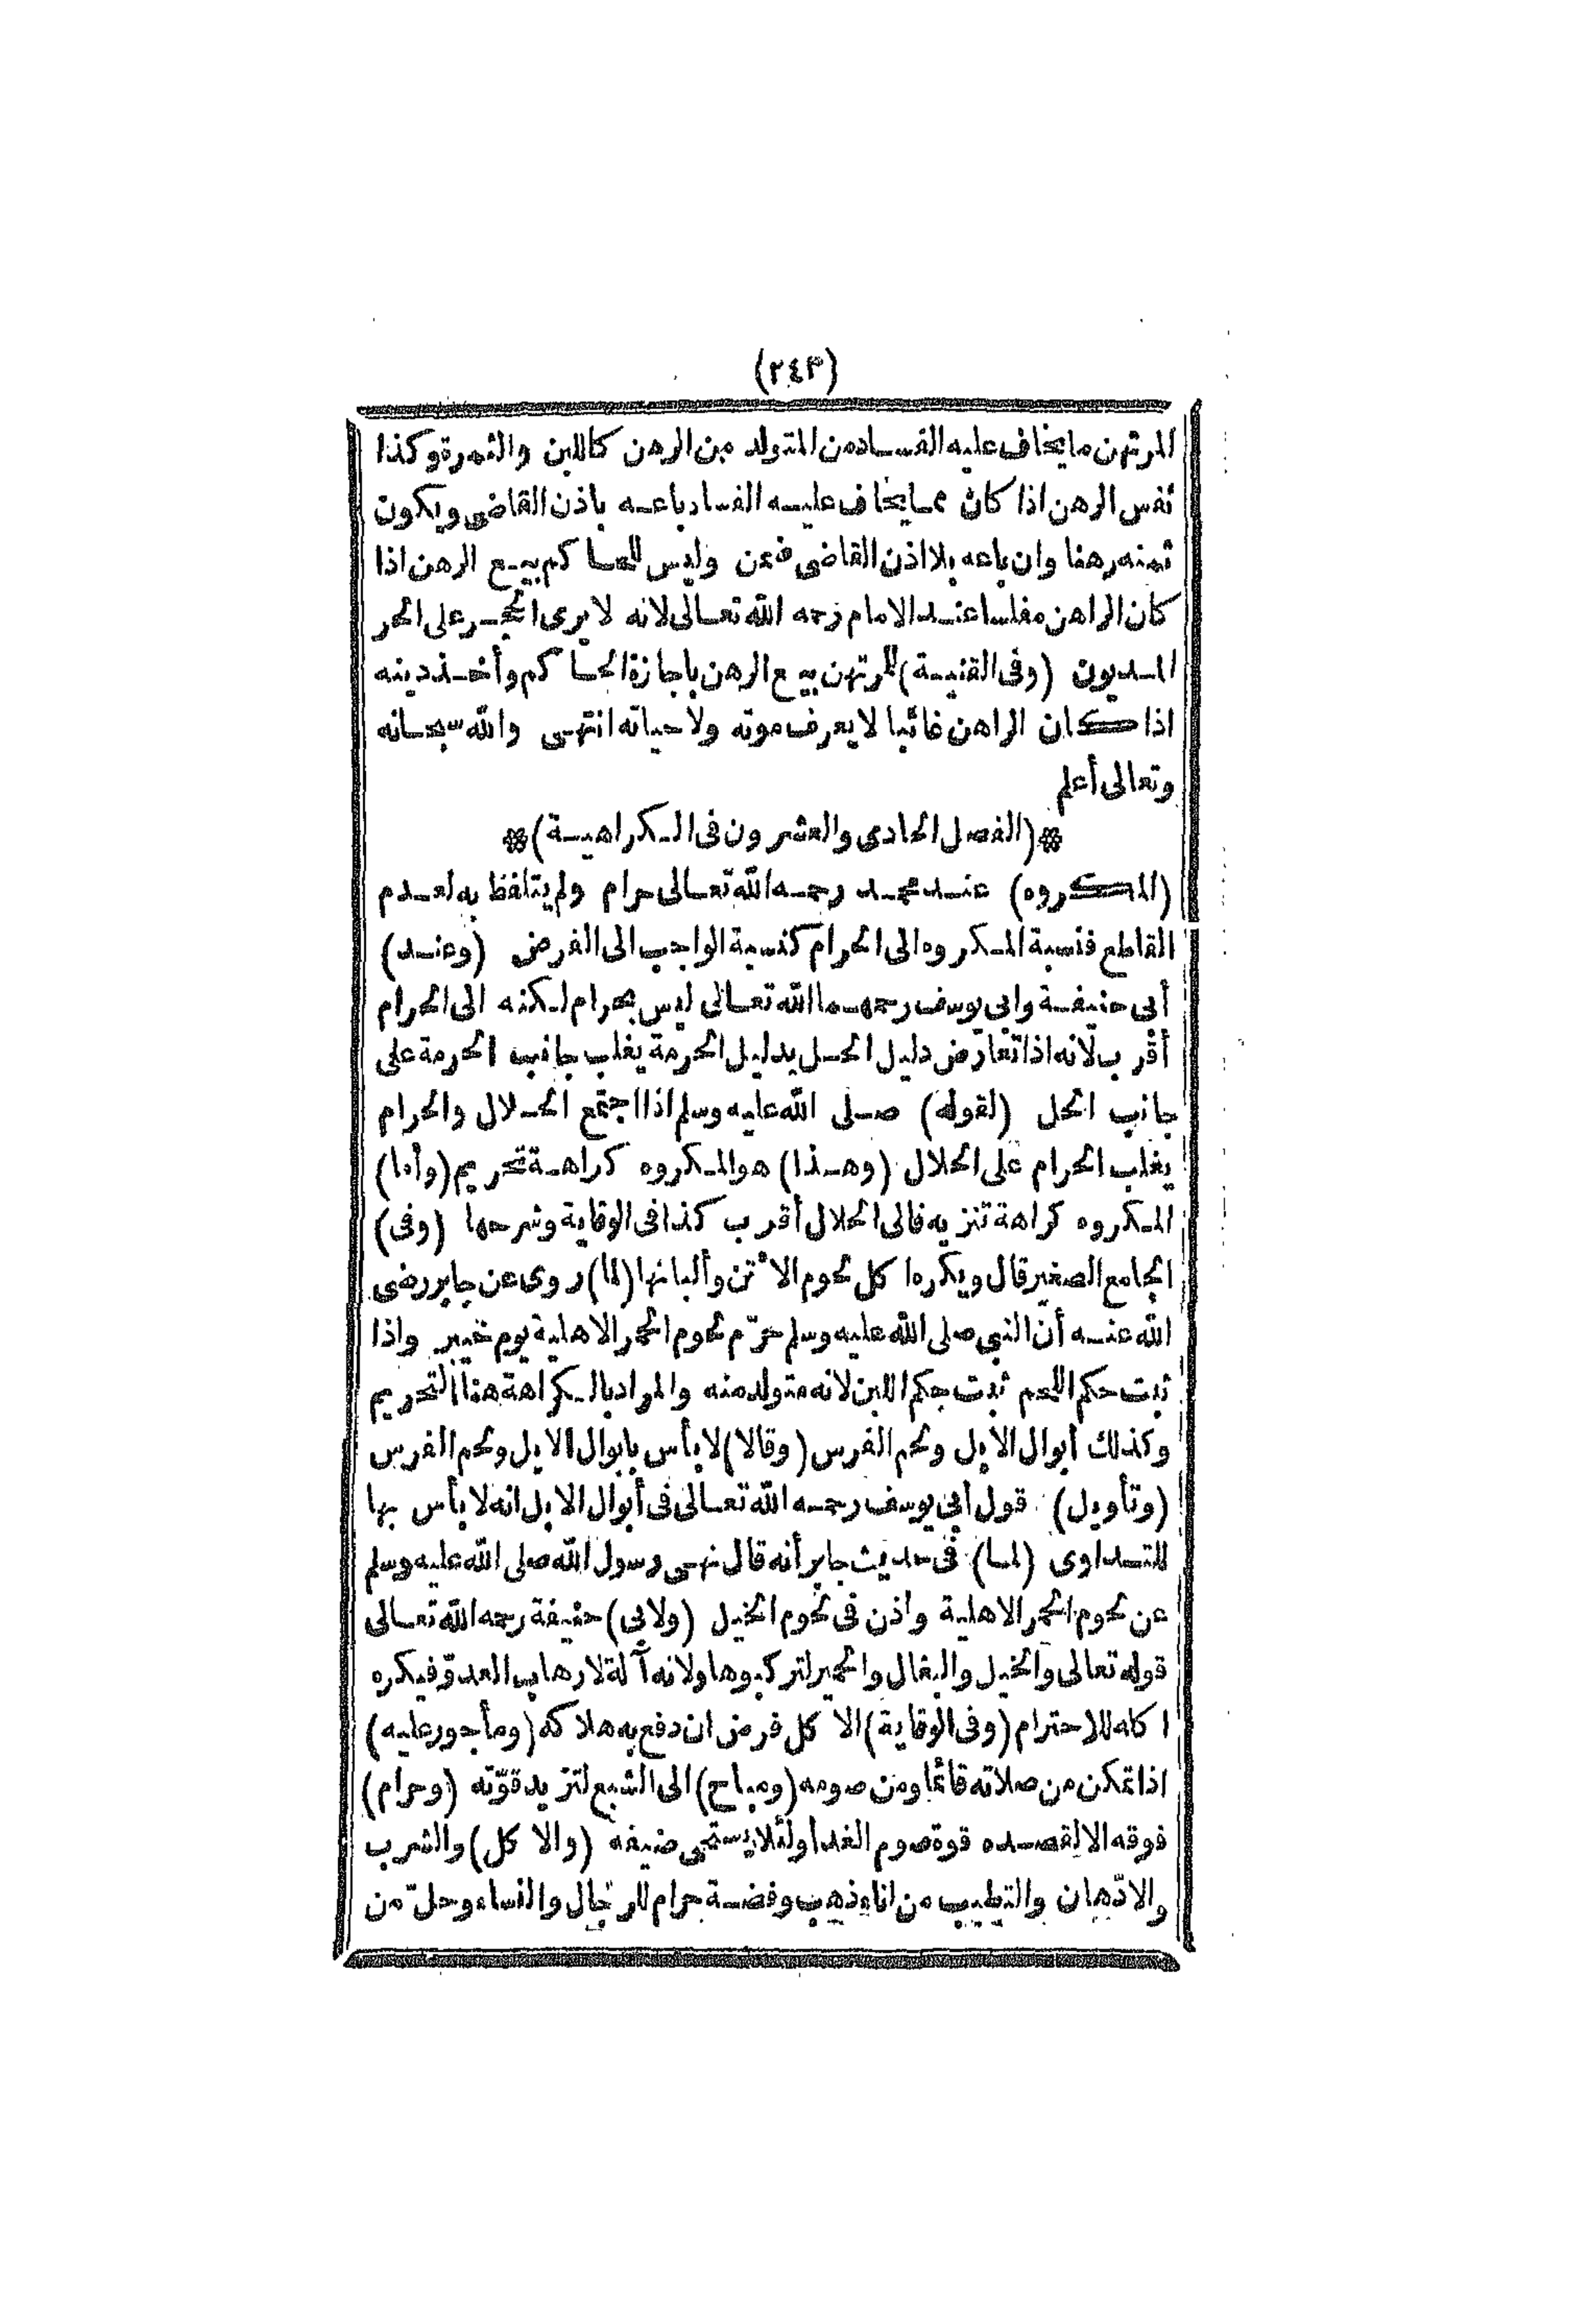 (٢٤٣)
المرتهن ما يخاف عليه الفساد من المتولد من الرهن كاللبن والثمرة وكذا
نفس الرهن اذا كان مما يخاف عليه الفساد باعه باذن القاضى ويكون
ثمنه رهنا وان باعه بلا اذن القاضى ضمن وليس للحاكم بيع الرهن اذا
كان الراهن مفلسا عند الامام رحمه الله تعالى لانه لا يرى الحجر على الحر
المديون (وفى القنية) للمرتهن بيع الرهن باجازة الحاكم وأخذ دينه
اذا كان الراهن غائبا لا يعرف موته ولا حياته انتهى والله سبحانه
وتعالى أعلم
*(الفصل الحادى والعشرون فى الكراهية)*
(المكروه) عند محمد رحمه الله تعالى حرام ولم يتلفظ به لعدم
القاطع فنسبة المكروه الى الحرام كنسبة الواجب الى الفرض (وعند)
أبى حنيفة وابى يوسف رحمهما الله تعالى ليس بحرام لكنه الى الحرام
أقرب لانه اذا تعارض دليل الحل بدليل الحرمة يغلب جانب الحرمة على
جانب الحل (لقوله) صلى الله عليه وسلم اذا اجتمع الحلال والحرام
يغلب الحرام على الحلال (وهذا) هو المكروه كراهة تحريم (وأما)
المكروه كراهة تنزيه فالى الحلال أقرب كذا فى الوقاية وشرحها (وفى)
الجامع الصغير قال ويكره اكل لحوم الأتن وألبانها (لما) روى عن جابر رضى
الله عنه أن النبى صلى الله عليه وسلم حرّم لحوم الحمر الاهلية يوم خيبر واذا
ثبت حكم اللحم ثبت حكم اللبن لانه متولد منه والمراد بالكراهة هنا التحريم
وكذلك أبوال الابل ولحم الفرس (وقالا) لا بأس بابوال الابل ولحم الفرس
(وتأويل) قول أبى يوسف رحمه الله تعالى فى أبوال الابل انه لا بأس بها
للتداوى (لما) فى حديث جابر أنه قال نهى رسول الله صلى الله عليه وسلم
عن لحوم الحمر الاهلية واذن فى لحوم الخيل (ولابى) حنيفة رحمه الله تعالى
قوله تعالى والخيل والبغال والحمير لتركبوها ولانه آلة لارهاب العدوّ فيكره
اكله للاحترام (وفى الوقاية) الاكل فرض ان دفع به هلاكه (ومأجور عليه)
اذا تمكن من صلاته قائما ومن صومه (ومباح) الى الشبع لتزيد قوّته (وحرام)
فوقه الا لقصده قوة صوم الغد أو لئلا يستحى ضيفه (والاكل) والشرب
والادّهان والتطيب من اناء ذهب وفضة حرام للرجال والنساء وحلّ من